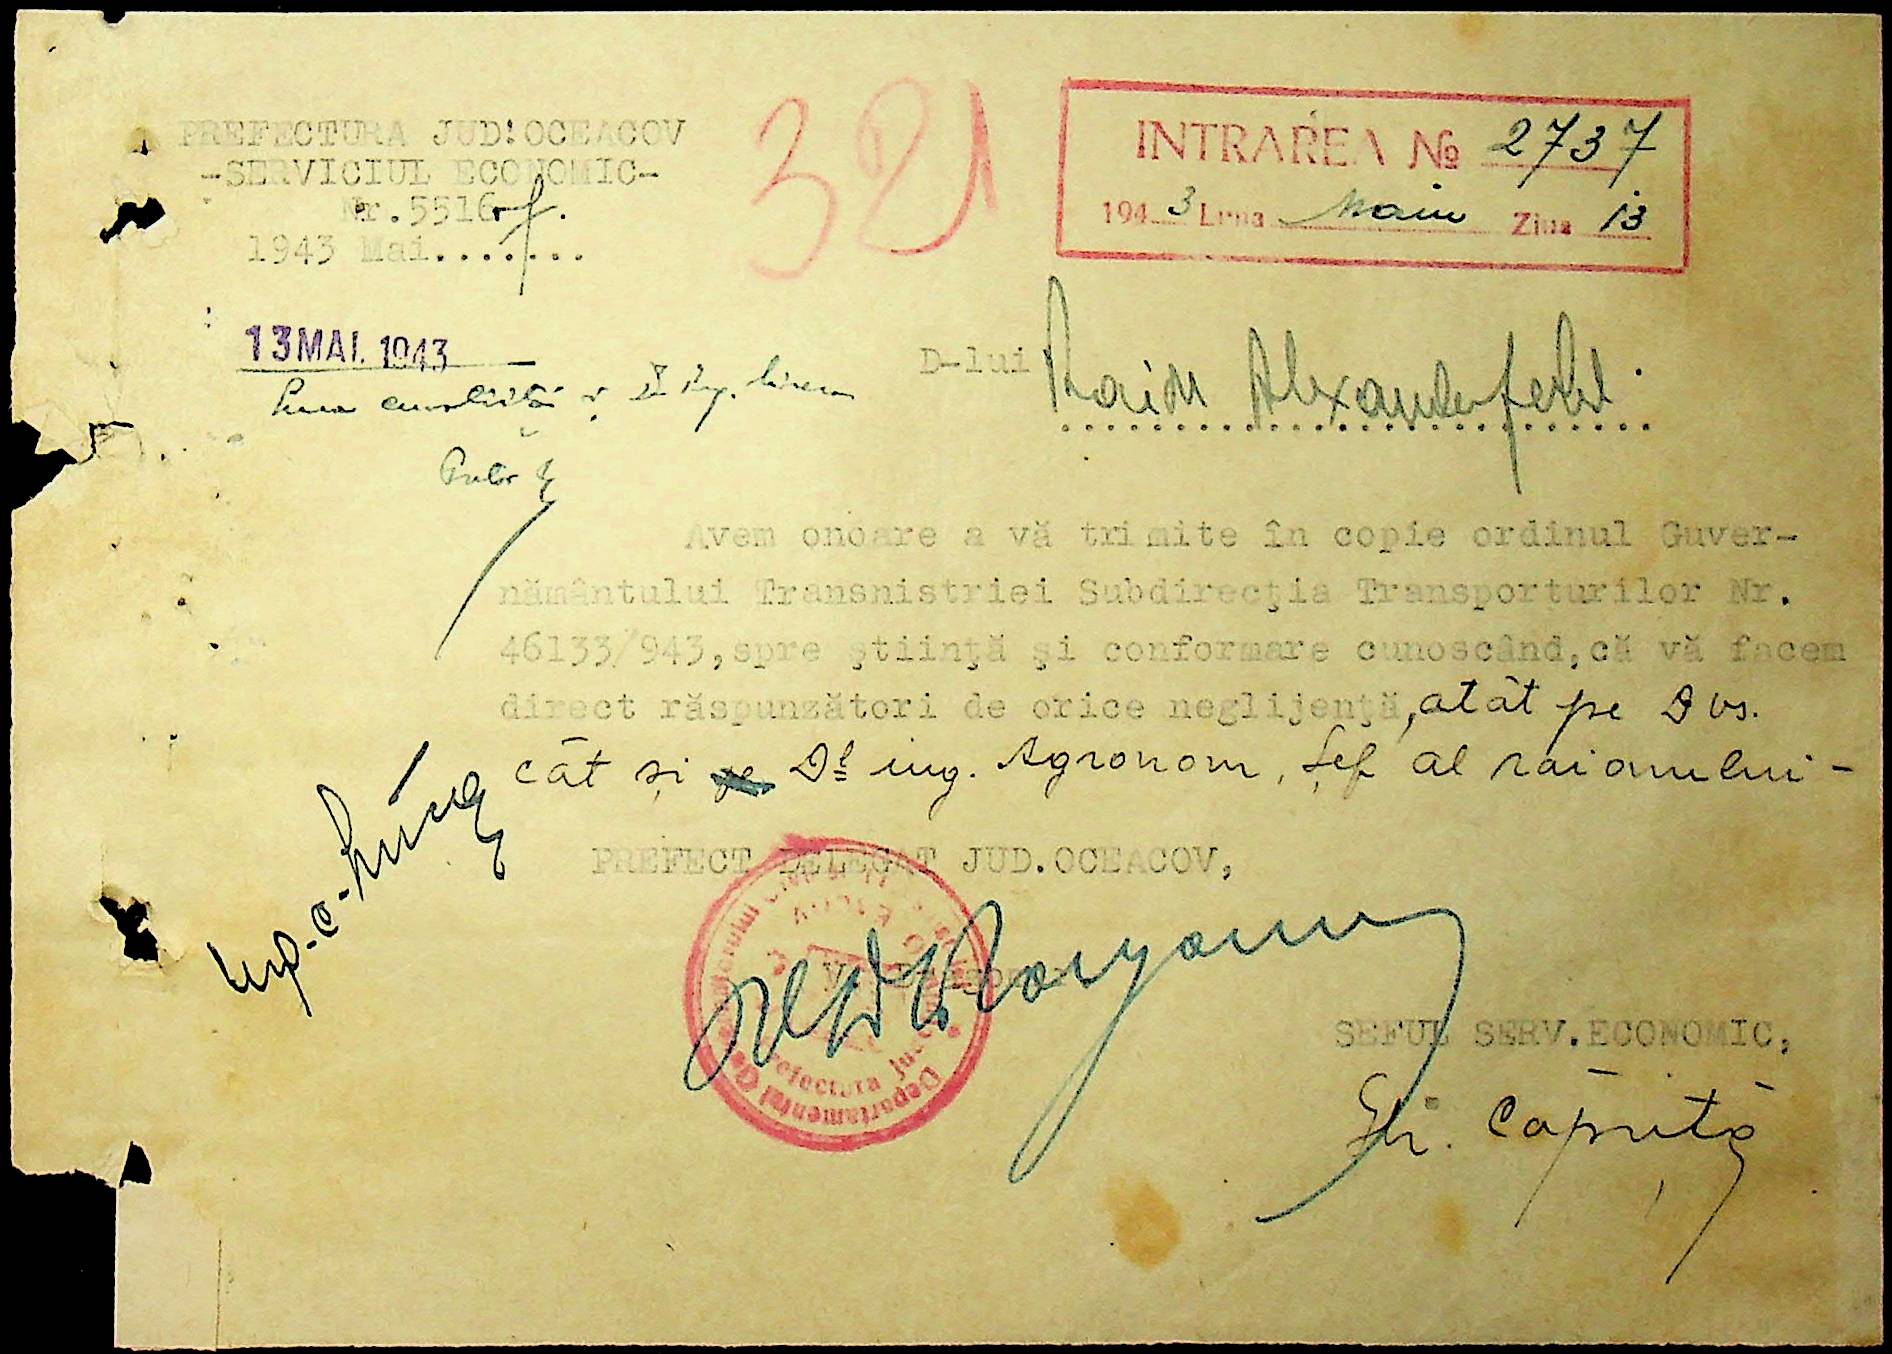 PREFECTURA JUD.OCEACOV
-SERVICIUL ECONOMIC-
Nr.5516
1943 Mai........
321
INTRAREA № 2737
1943 Luna Maiu Ziua 13
13 MAI. 1943
D-lui Raion Alexanderfeld
Avem onoare a vă trimite în copie ordinul Guver-
nământului Transnistriei Subdirecţia Transporturilor Nr.
46133/943, spre ştiinţă şi conformare cunoscând, că vă facem
direct răspunzători de orice neglijenţă, atât pe Dvs.
cât și Dl ing. Agronom, Șef al raionului -
PREFECT DELEGAT JUD.OCEACOV,
Prefectura
Departamentul
SEFUL SERV.ECONOMIC,
Gh. Căpriță